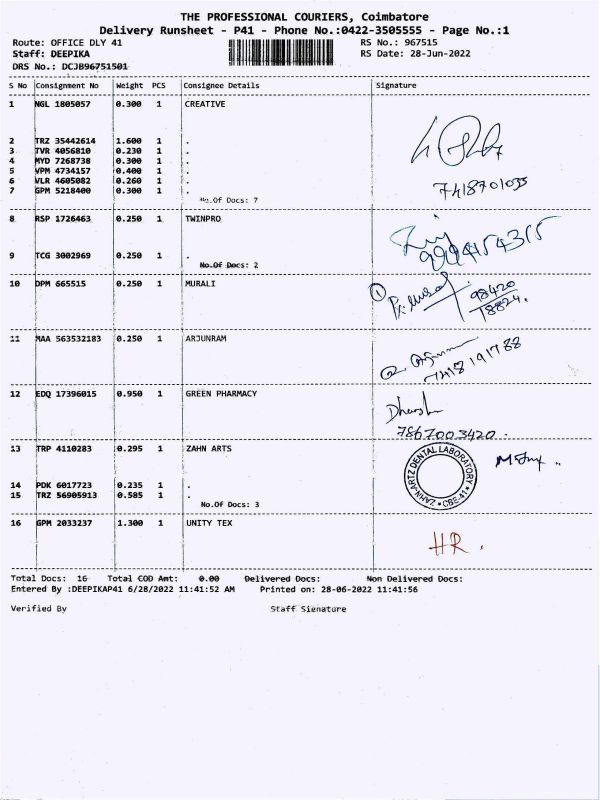 THE PROFESSIONAL COURIERS, Coimbatore
Delivery Runsheet - P41 - Phone No.:0422-3505555 - Page No.:1
Route: OFFICE DLY 41 RS No.: 967515
Staff: DEEPIKA RS Date: 28-Jun-2022
DRS No.: DCJB96751501
S No Consignment No Weight PCS Consignee Details Signature
1 NGL 1805057 0.300 1 CREATIVE
2 TRZ 35442614 1.600 1 .
3 TVR 4056810 0.230 1 .
4 MYD 7268738 0.300 1 .
5 VPM 4734157 0.400 1 .
6 VLR 4605082 0.260 1 .
7 GPM 5218400 0.300 1 . 7418701035
No.Of Docs: 7
8 RSP 1726463 0.250 1 TWINPRO
9994154315
9 TCG 3002969 0.250 1 .
No.Of Docs: 2
10 DPM 665515 0.250 1 MURALI 1 98420
78824.
11 MAA 563532183 0.250 1 ARJUNRAM
7418191788
12 EDQ 17396015 0.950 1 GREEN PHARMACY
7867003420.
13 TRP 4110283 0.295 1 ZAHN ARTS
ZAHN-ARTZ DENTAL LABORATORY
CBE-41
14 PDK 6017723 0.235 1 .
15 TRZ 56905913 0.585 1 .
No.Of Docs: 3
16 GPM 2033237 1.300 1 UNITY TEX
HR.
Total Docs: 16 Total COD Amt: 0.00 Delivered Docs: Non Delivered Docs:
Entered By :DEEPIKAP41 6/28/2022 11:41:52 AM Printed on: 28-06-2022 11:41:56
Verified By Staff Signature